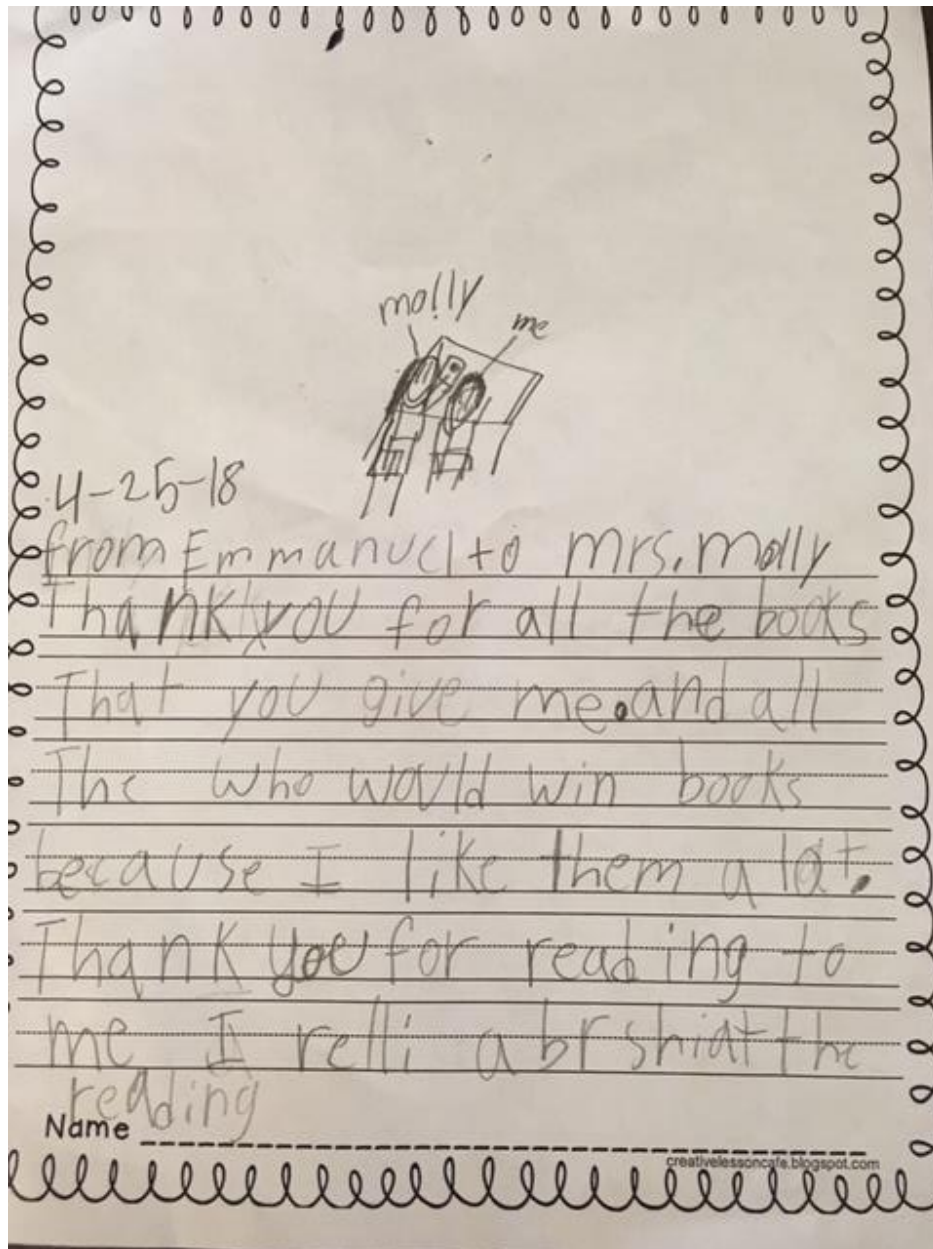 molly
me
4-25-18
from Emmanuel to mrs. molly
Thank you for all the books
That you give me. and all
The who would win books
because I like them a lot.
Thank you for reading to
me I relli abrshiat the
reading
Name
creativelessoncafe.blogspot.com